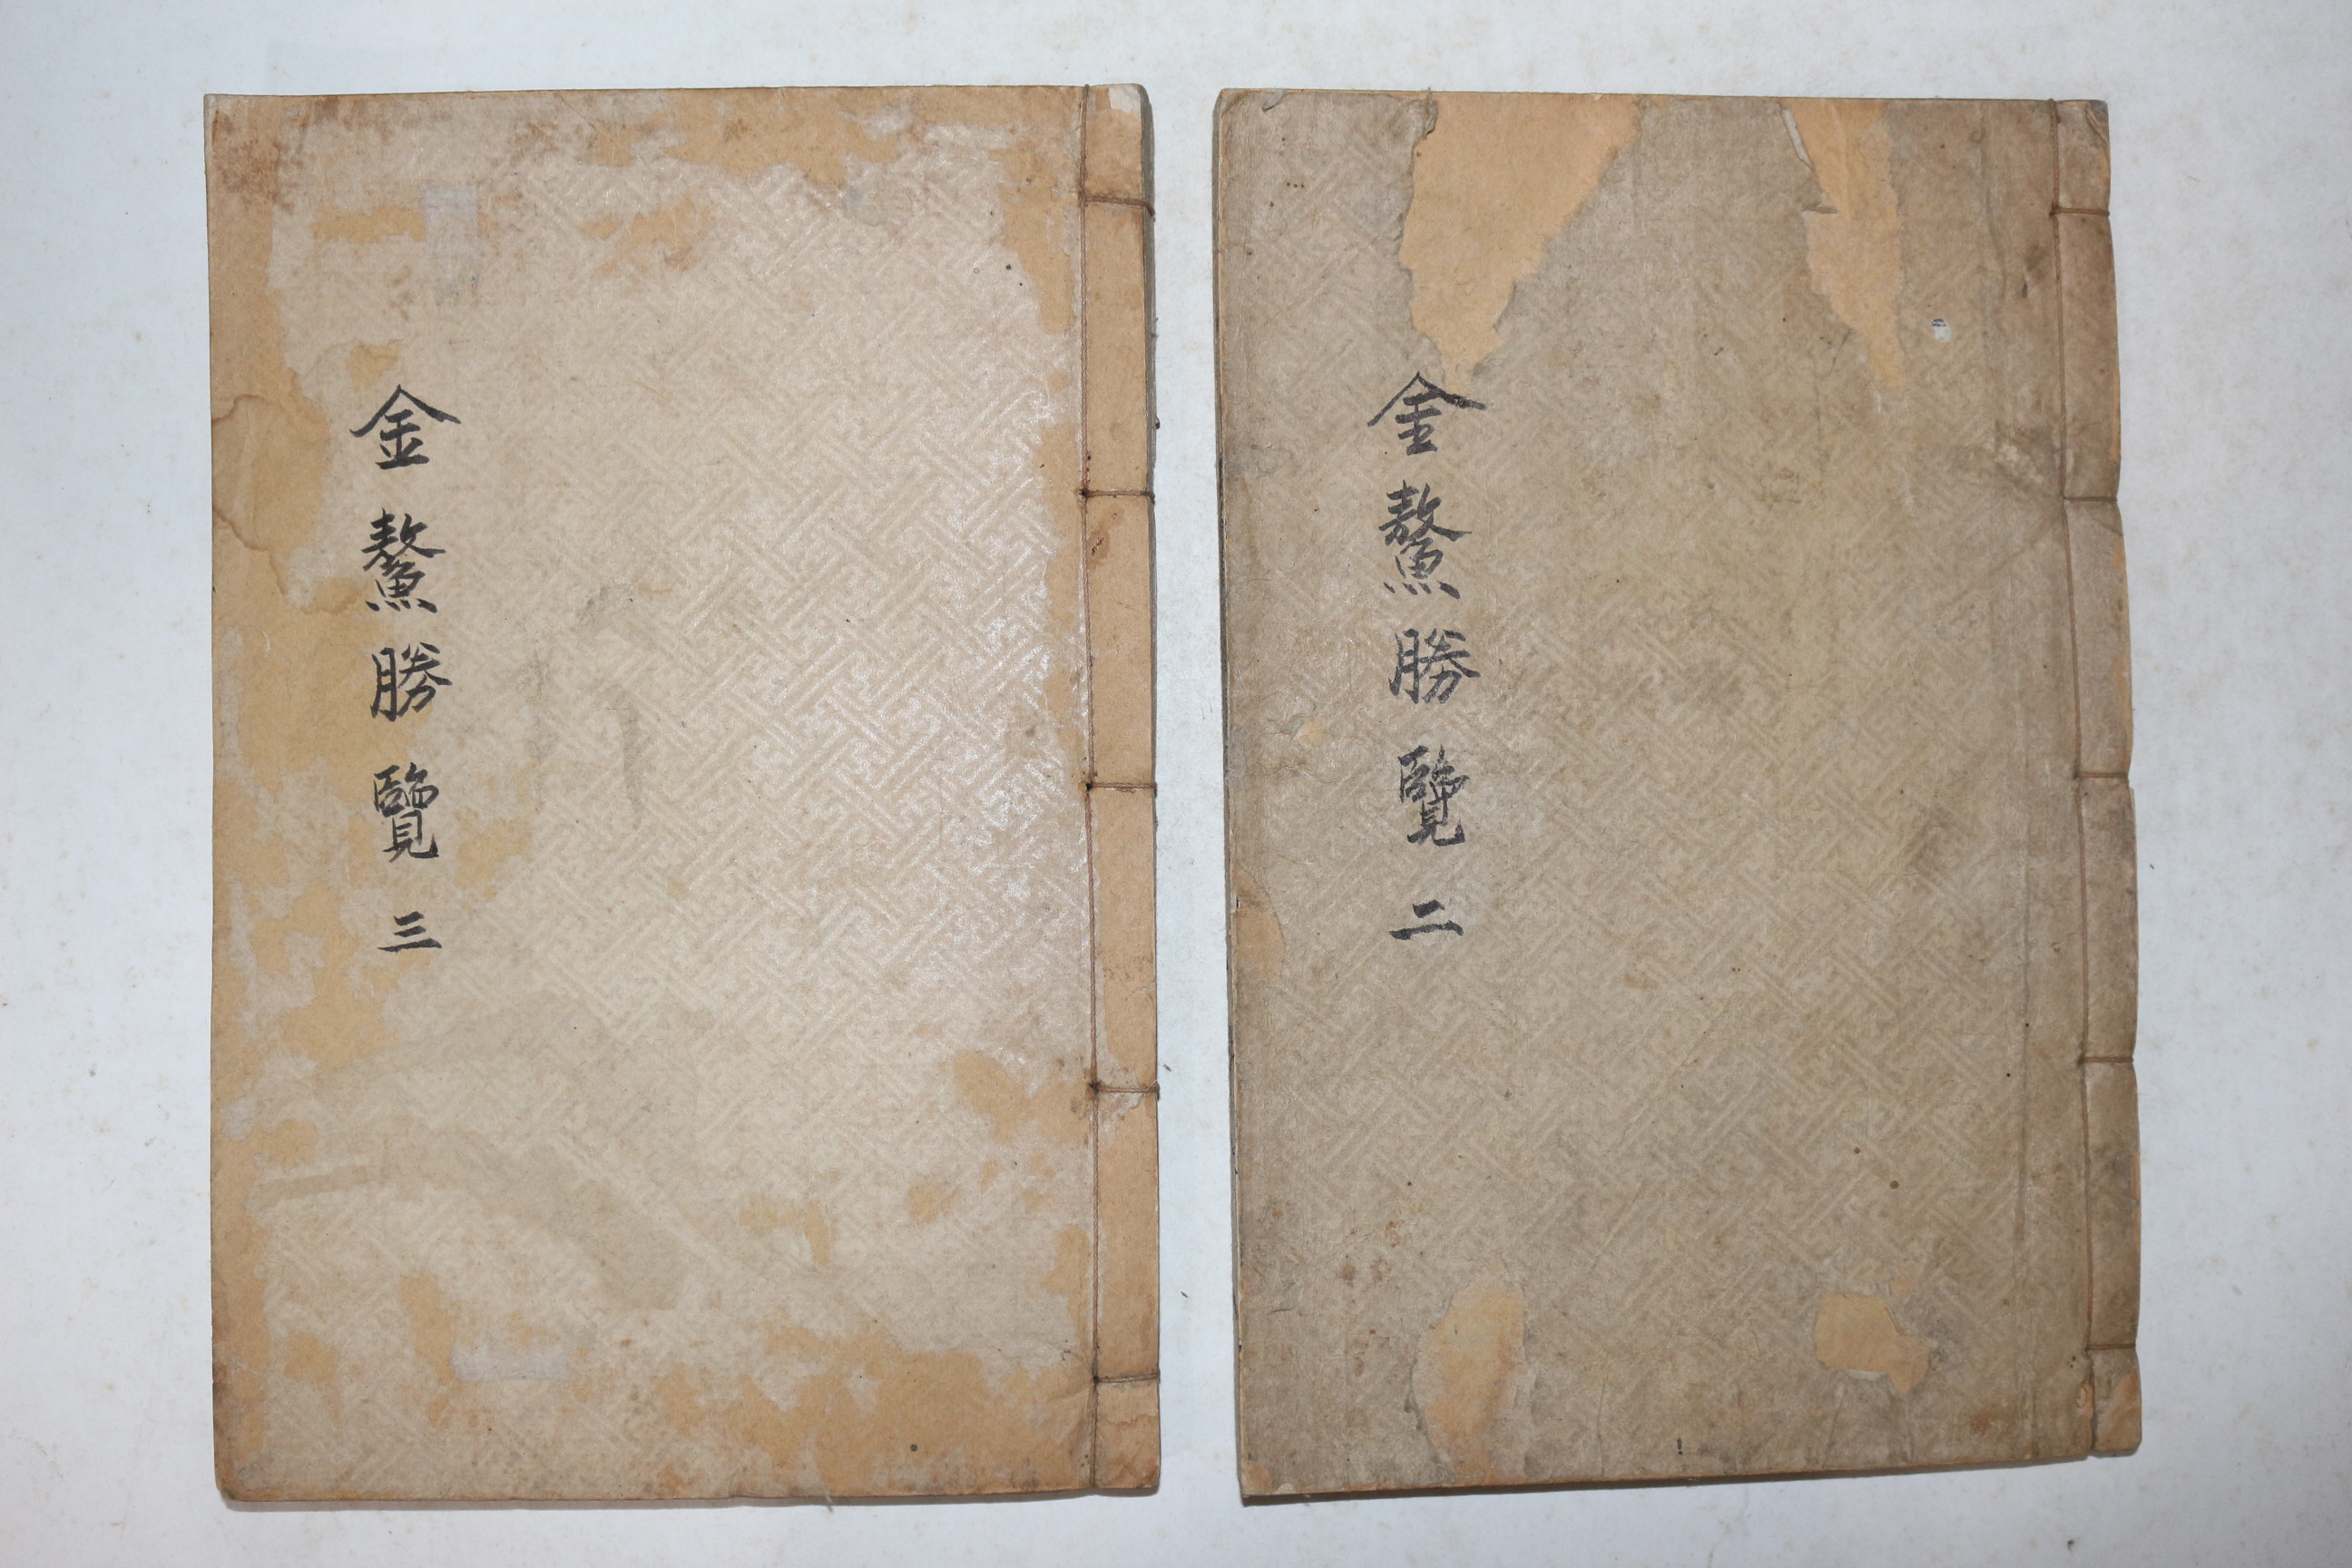 金鰲勝覽 二
金鰲勝覽 三